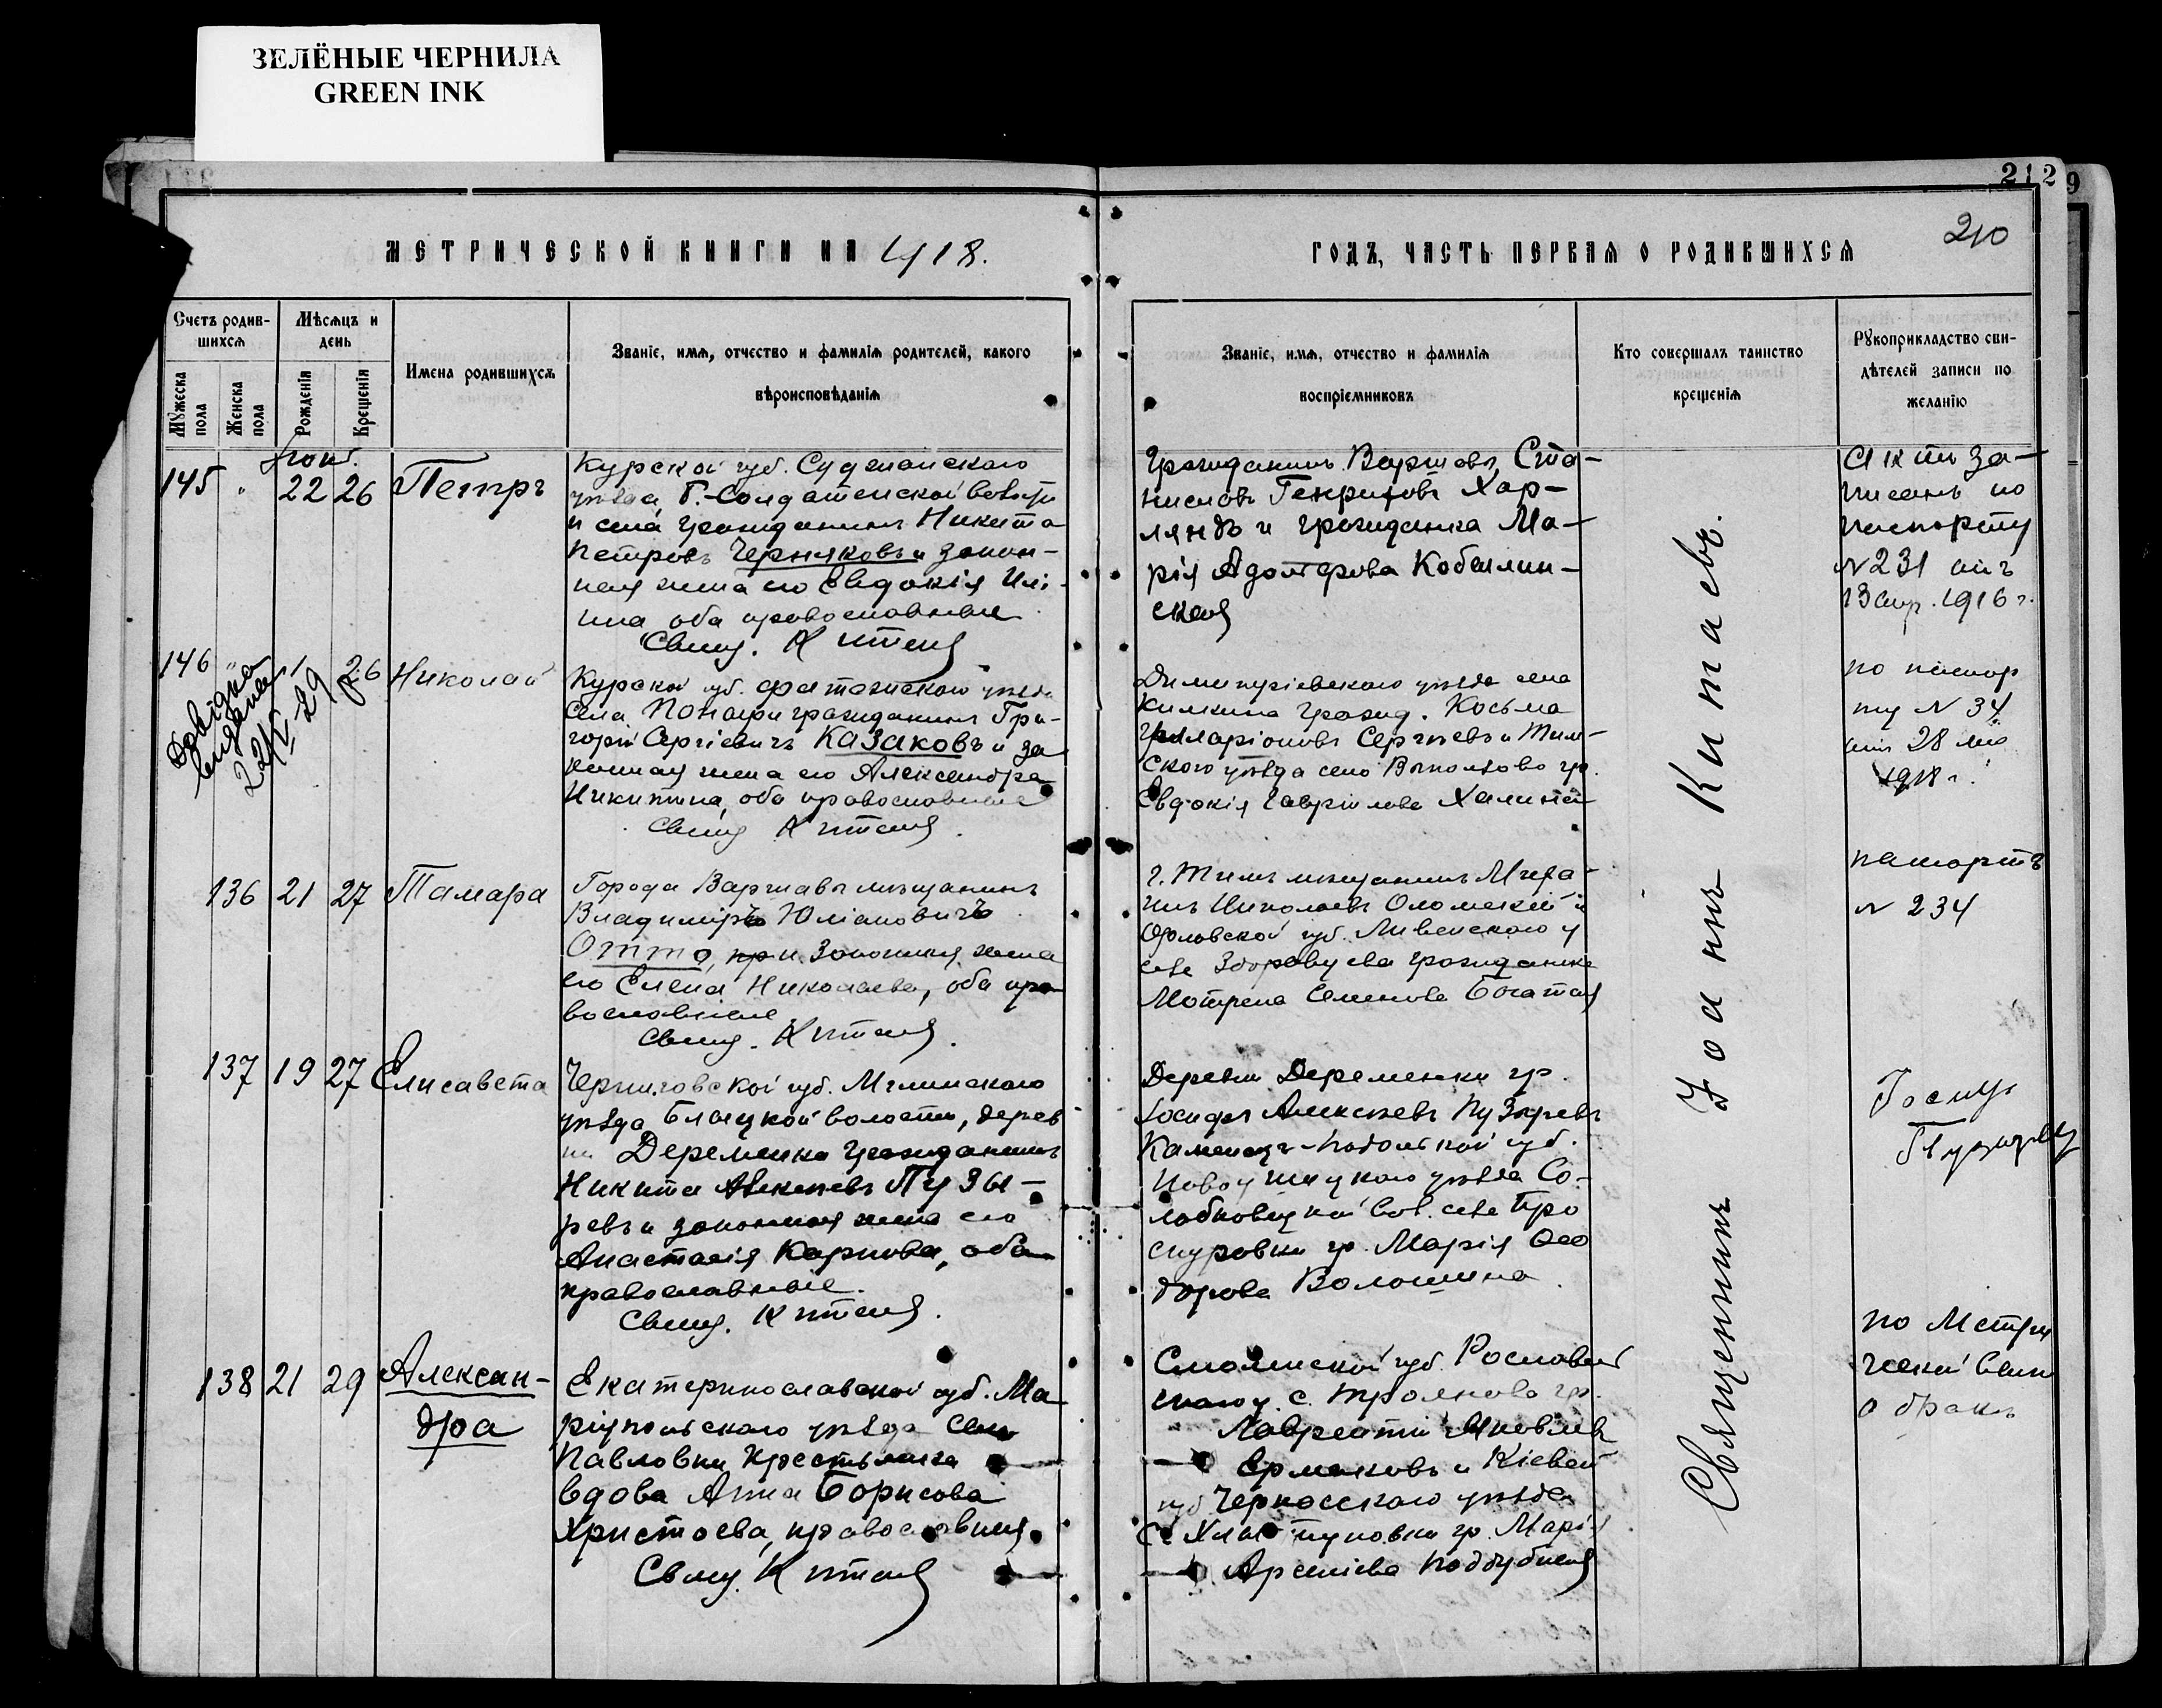 ЗЕЛЁНЫЕ ЧЕРНИЛА
GREEN INK
212
9
210
МЕТРИЧЕСКОЙ КНИГИ НА 1918.
ГОДЪ, ЧАСТЬ ПЕРВАЯ О РОДИВШИХСЯ
Счетъ родив-
шихся
Мужеска пола
Женска пола
Мѣсяцъ и
день
Рожденія
Крещенія
Имена родившихся
Званіе, имя, отчество и фамилія родителей, какого
вѣроисповѣданія
Званіе, имя, отчество и фамилія
воспріемниковъ
Кто совершалъ таинство
крещенія
Рукоприкладство сви-
дѣтелей записи по
желанію
145 22 26 Петръ
Курской губ. Суджанскаго
уѣзда, Б.-Солдатской волости
и села гражданинъ Никита
Петровъ Черняковъ и закон-
ная жена его Евдокія Иль-
ина оба православные
Свящ. Китаевъ
Гражданинъ Варшавы Ста-
ниславъ Генриховъ Хар-
ляндъ и гражданка Ма-
рія Адольфова Кобылин-
ская
Актъ за-
писанъ по
паспорту
N 231 отъ
13 апр. 1916 г.
146 26 Николай
22/V 29
Курской губ. Фатежскаго уѣзда
села Поныри гражданинъ Гри-
горій Сергіевичъ Казаковъ и за
конная жена его Александра
Никитина, оба православные
Свящ Китаевъ
Димитріевскаго уѣзда села
гражд. Косьма
Иларіоновъ Сергѣевъ и Тим-
скаго уѣзда село гр.
Евдокія Гаврілова Халина
по паспор
ту N 34
отъ 28
1918 г.
136 21 27 Тамара
Города Варшавы мѣщанинъ
Владиміръ Юліановичъ
Отто, и законная жена
его Елена Николаева, оба пра-
вославные
Свящ. Китаевъ
г. Тима мѣщанинъ Миха-
илъ Николаевъ и
Орловской губ. Ливенскаго у
села гражданка
Мотрена Семенова Богатая
паспортъ
N 234
137 19 27 Елисавета
Черниговской губ. Мглинскаго
уѣзда волости, дерев
ни Деременка гражданинъ
Никита Алексѣевъ Пузы-
ревъ и законная жена его
Анастасія Карпова, оба
православные.
Свящ. Китаевъ
Деревни Деременки гр.
Іосифъ Алексѣевъ Пузыревъ
Каменецъ-Подольской губ.
Новоушицкаго уѣзда Со-
лобковецкой вол. села Про
скуровки гр. Марія Ѳео
дорова Волошина
Іосифъ
Пузыревъ
138 21 29 Алексан-
дра
Екатеринославской губ. Ма
ріупольскаго уѣзда села
Павловки крестьянка
вдова Анна Борисова
Христоева, православная.
Свящ. Китаевъ
Смоленской губ. Рославль
скаго у. с. гр.
Лаврентій Яковлевъ
Ермаковъ и Кіевской
губ Черкасскаго уѣзда
с. Хлыстуновки гр. Марія
Арсеніева Поддубная
по Метри
ческой выпи
о бракѣ
Священникъ Іоаннъ Китаевъ.